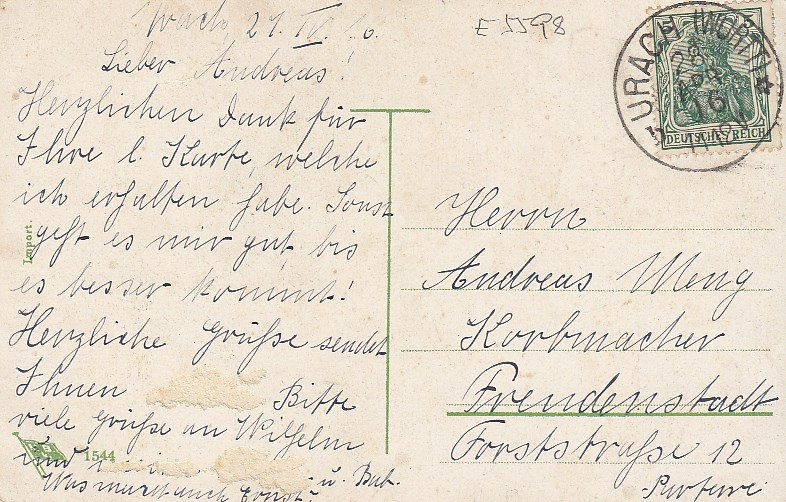 Urach, 27. IV. 16.
E 5598
Lieber Andreas!
Herzlichen Dank für
Ihre l. Karte, welche
ich erhalten habe. Sonst
geht es mir gut bis
es besser kommt!
Herzliche Grüße sendet
Ihnen
Bitte
viele Grüße an Wilhelm
und
u. Bab.
Was macht auch Ernst?
Import.
1544
URACH (WÜRTT)
28
16
DEUTSCHES REICH
Herrn
Andreas Meng
Korbmacher
Freudenstadt
Forststraße 12
Parterre